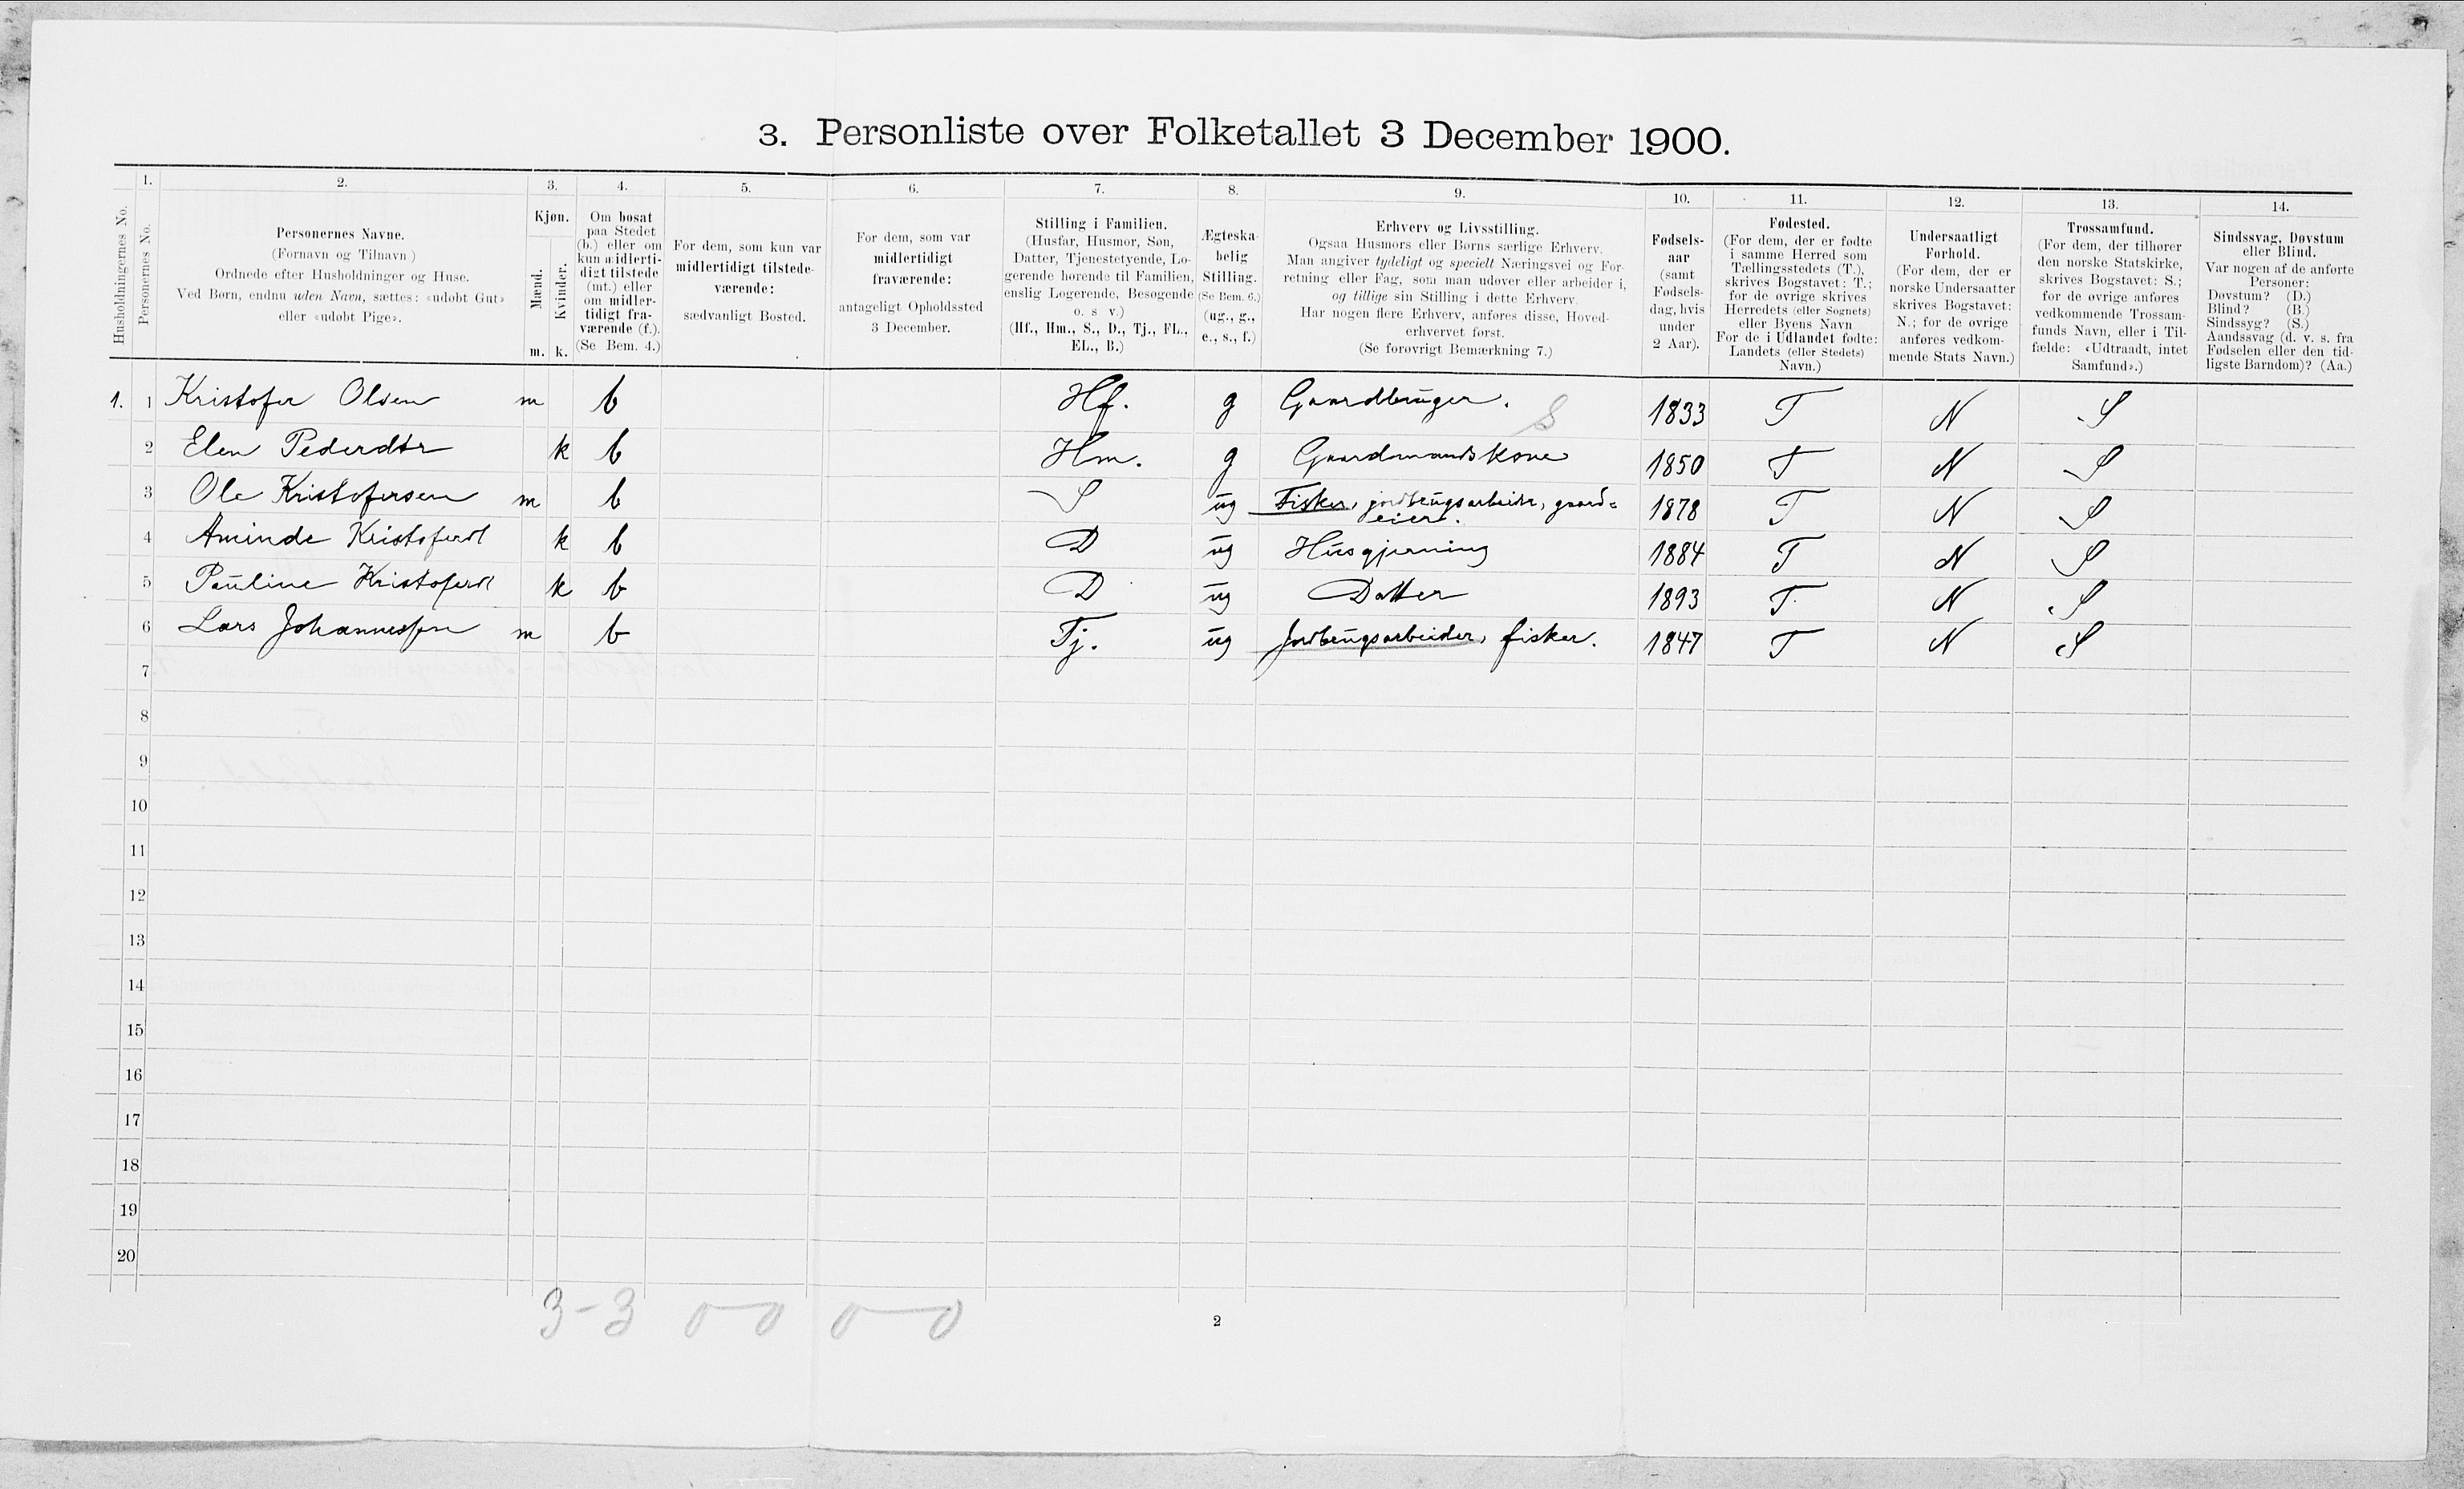 3. Personliste over Folketallet 3 December 1900.
1. 2. 3. 4. 5. 6. 7. 8. 9. 10. 11. 12. 13. 14.
Husholdningernes No.
Personernes No.
Personernes Navne.
(Fornavn og Tilnavn)
Ordnede efter Husholdninger og Huse.
Ved Børn, endnu uden Navn, sættes: «udøbt Gut»
eller «udøbt Pige».
Kjøn.
Mænd.
Kvinder.
m. k.
Om bosat
paa Stedet
(b.) eller om
kun midlerti-
digt tilstede
(mt.) eller
om midler-
tidigt fra-
værende (f.).
(Se Bem. 4.)
For dem, som kun var
midlertidigt tilstede-
værende:
sædvanligt Bosted.
For dem, som var
midlertidigt
fraværende:
antageligt Opholdssted
3 December.
Stilling i Familien.
(Husfar, Husmor, Søn,
Datter, Tjenestetyende, Lo-
gerende hørende til Familien,
enslig Logerende, Besøgende
o. s v.)
(Hf., Hm., S., D., Tj., FL.,
EL., B.)
Ægteska-
belig
Stilling.
(Se Bem. 6.)
(ug., g.,
e., s., f.)
Erhverv og Livsstilling.
Ogsaa Husmors eller Børns særlige Erhverv.
Man angiver tydeligt og specielt Næringsvei og For-
retning eller Fag, som man udøver eller arbeider i,
og tillige sin Stilling i dette Erhverv.
Har nogen flere Erhverv, anføres disse, Hoved-
erhvervet først.
(Se forøvrigt Bemærkning 7.)
Fødsels-
aar
(samt
Fødsels-
dag, hvis
under
2 Aar).
Fødested.
(For dem, der er fødte
i samme Herred som
Tællingsstedets (T.),
skrives Bogstavet: T.;
for de øvrige skrives
Herredets (eller Sognets)
eller Byens Navn
For de i Udlandet fødte:
Landets (eller Stedets)
Navn.)
Undersaatligt
Forhold.
(For dem, der er
norske Undersaatter
skrives Bogstavet:
N.; for de øvrige
anføres vedkom-
mende Stats Navn.)
Trossamfund.
(For dem, der tilhører
den norske Statskirke,
skrives Bogstavet: S.;
for de øvrige anføres
vedkommende Trossam-
funds Navn, eller i Til-
fælde: «Udtraadt, intet
Samfund».)
Sindssvag, Døvstum
eller Blind.
Var nogen af de anførte
Personer:
Døvstum? (D.)
Blind? (B.)
Sindssyg? (S.)
Aandssvag (d. v. s. fra
Fødselen eller den tid-
ligste Barndom)? (Aa.)
1. 1 Kristofer Olsen m b Hf. g Gaardbruger. S 1833 T N S
2 Elen Pedersdtr k b Hm. g Gaardmandskone 1850 T N S
3 Ole Kristofersen m b S ug Fisker, jordbrugsarbeider, gaard-
eier. 1878 T N S
4 Aminde Kristoferdt k b D ug Husgjerning 1884 T N S
5 Pauline Kristoferdt k b D ug Datter 1893 T. N S
6 Lars Johannessen m b Tj. ug Jordbrugsarbeider, fisker. 1847 T N S
7
8
9
10
11
12
13
14
15
16
17
18
19
20
3-3 0-0 0-0
2